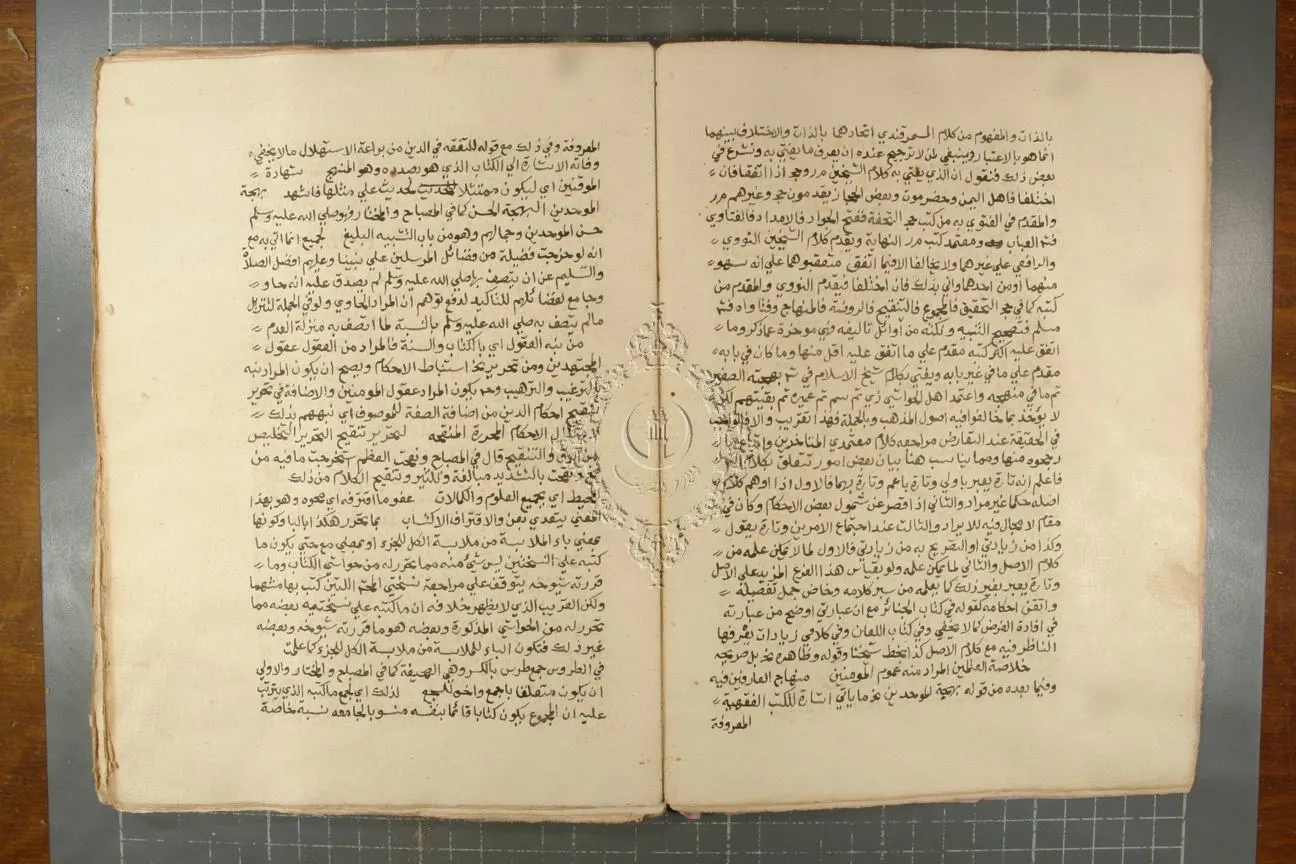 بالذات والمفهوم من كلام السمرقندي اتحادهما بالذات والاختلاف بينهما
انما هو بالاعتبار وينبغي لمن لا ترجيح عنده ان يعرف ما يفتي به ونشرع في
بعض ذلك فنقول ان الذي يفتي به كلام الشيخين مر وحج اذا اتفقا فان
اختلفا فاهل اليمن وحضرموت وبعض الحجاز يقدمون حج وغيرهم مر
والمقدم في الفتوى به من كتب حج التحفة ففتح الجواد فالامداد فالفتاوي
فشرح العباب ومعتمد كتب مر النهاية ويقدم كلام الشيخين النووي
والرافعي على غيرهما ولا يخالفا الا فيما اتفق متعقبوهما على انه سهو
منهما او من احدهما واني بذلك فان اختلفا فيقدم النووي والمقدم من
كتبه كما في حج التحقيق فالمجموع فالتنقيح فالروضة فالمنهاج وفتاواه فشرح
مسلم فتصحيح التنبيه ونكته من اوائل تاليفه فهي موخرة عما ذكر وما
اتفق عليه اكثر كتبه مقدم على ما اتفق عليه اقل منها وما كان في بابه
مقدم على ما في غير بابه ويفتي بكلام شيخ الاسلام في شرح بهجته الصغير
ثم ما في منهجه واعتمد اهل الحواشي زي ثم سم ثم عميرة ثم بقيتهم لكن
لا يؤخذ بما خالفوا فيه اصول المذهب وبالجملة فهذا تقريب والا فالواجب
في الحقيقة عند التعارض مراجعة كلام معتمدي المتاخرين واتباع ما
رجحوه منها ومما يناسب هنا بيان بعض امور تتعلق بكلام
فاعلم انه تارة يعبر باولى وتارة باعم وتارة بهما فالاول اذا اوهم كلام
اصله حكما غير مراد والثاني اذا قصر عن شمول بعض الاحكام وكان في
مقام لا مجال فيه للايراد والثالث عند اجتماع الامرين وتارة يقول
وكذا من زيادتي او التصريح به من زيادتي فالاول لما لا يمكن علمه من
كلام الاصل والثاني لما يمكن علمه ولو بقياس هذا الفرع المزيد على الاصل
وتارة يعبر بغير ذلك كما يعلمه من سبر كلامه وخاض جمل تفصيله
واتقن احكامه لقوله في كتاب الجنائز مع ان عبارتي اوضح من عبارته
في افادة الغرض كما لا يخفى وفي كتاب اللعان وفي كلامي زيادات يعرفها
الناظر فيه مع كلام الاصل كذا بخط شيخنا وقوله وظاهره تخ بل صريحه
خلاصة العالمين المراد منه عموم المومنين منهاج العارفين فيه
وفيما بعده من قوله بهجة الموحدين نحو ما ياتي اشارة للكتب الفقهية
المعروفة
المعروفة وفي ذلك مع قوله للتفقه في الدين من براعة الاستهلال ما لا يخفى
وفاته الاشارة الى الكتاب الذي هو بصدده وهو المنهج شهادة
الموقنين اي ليكون ممتثلا لحديث على مثلها فاشهد بهجة
الموحدين البهجة الحسن كما في المصباح والمختار فهو صلى الله عليه وسلم
حسن الموحدين وجمالهم وهو من باب التشبيه البليغ لجميع انما اتي به مع
انه لو خرجت فضيلة من فضائل المرسلين على نبينا وعليهم افضل الصلاة
والتسليم عن ان يتصف بها صلى الله عليه وسلم لم يصدق عليه انه حاو
وجامع لفضائلهم للتاكيد لدفع توهم ان المراد الحاوي ولو في الجملة لتنزيل
ما لم يتصف به صلى الله عليه وسلم بالنسبة لما اتصف به منزلة العدم
من نبه العقول اي بالكتاب والسنة فالمراد من العقول عقول
المجتهدين ومن تحرير تخ استنباط الاحكام ويصح ان يكون المراد نبه
بالترغيب والترهيب وح يكون المراد عقول المومنين والاضافة في تحرير
تنقيح احكام الدين من اضافة الصفة للموصوف اي نبههم بذلك
الاحكام المحررة المنتقحة لتحرير تنقيح التحرير التخليص
والتنقيح قال في المصباح ونقحت العظم استخرجت ما فيه من
ونقحت بالتشديد مبالغة وتكثير وتنقيح الكلام من ذلك
المحيط اي بجميع العلوم والكمالات عفو ما اقترفه اي محوه وهو بهذا
المعنى يتعدى بعن والاقتراف الاكتساب بما تحرر هكذا بالباء وكونها
بمعنى باء الملابسة من ملابسة الكل للجزء او بمعنى مع حتى يكون ما
كتبه على النسختين ليس شي منه مما تحرر له من حواشي الكتاب وما
قررته شيوخه يتوقف على مراجعة نسختي المحشي اللتين كتب بهامشهما
ولكن القريب الذي لا يظهر خلافه ان ما كتبه على نسختيه بعضه مما
تحرر له من الحواشي المذكورة وبعضه هو ما قررته شيوخه وبعضه
غير ذلك فتكون الباء للملابسة من ملابسة الكل للجزء كما علمت
في الطروس جمع طرس بالكسر وهي الصحيفة كما في المصباح والمختار والاولى
ان يكون متعلقا باجمع واخره للسجع لذلك اي لجمع ما كتبه الذي يترتب
عليه ان المجموع يكون كتابا قائما بنفسه منسوبا لجامعه نسبة خاصة